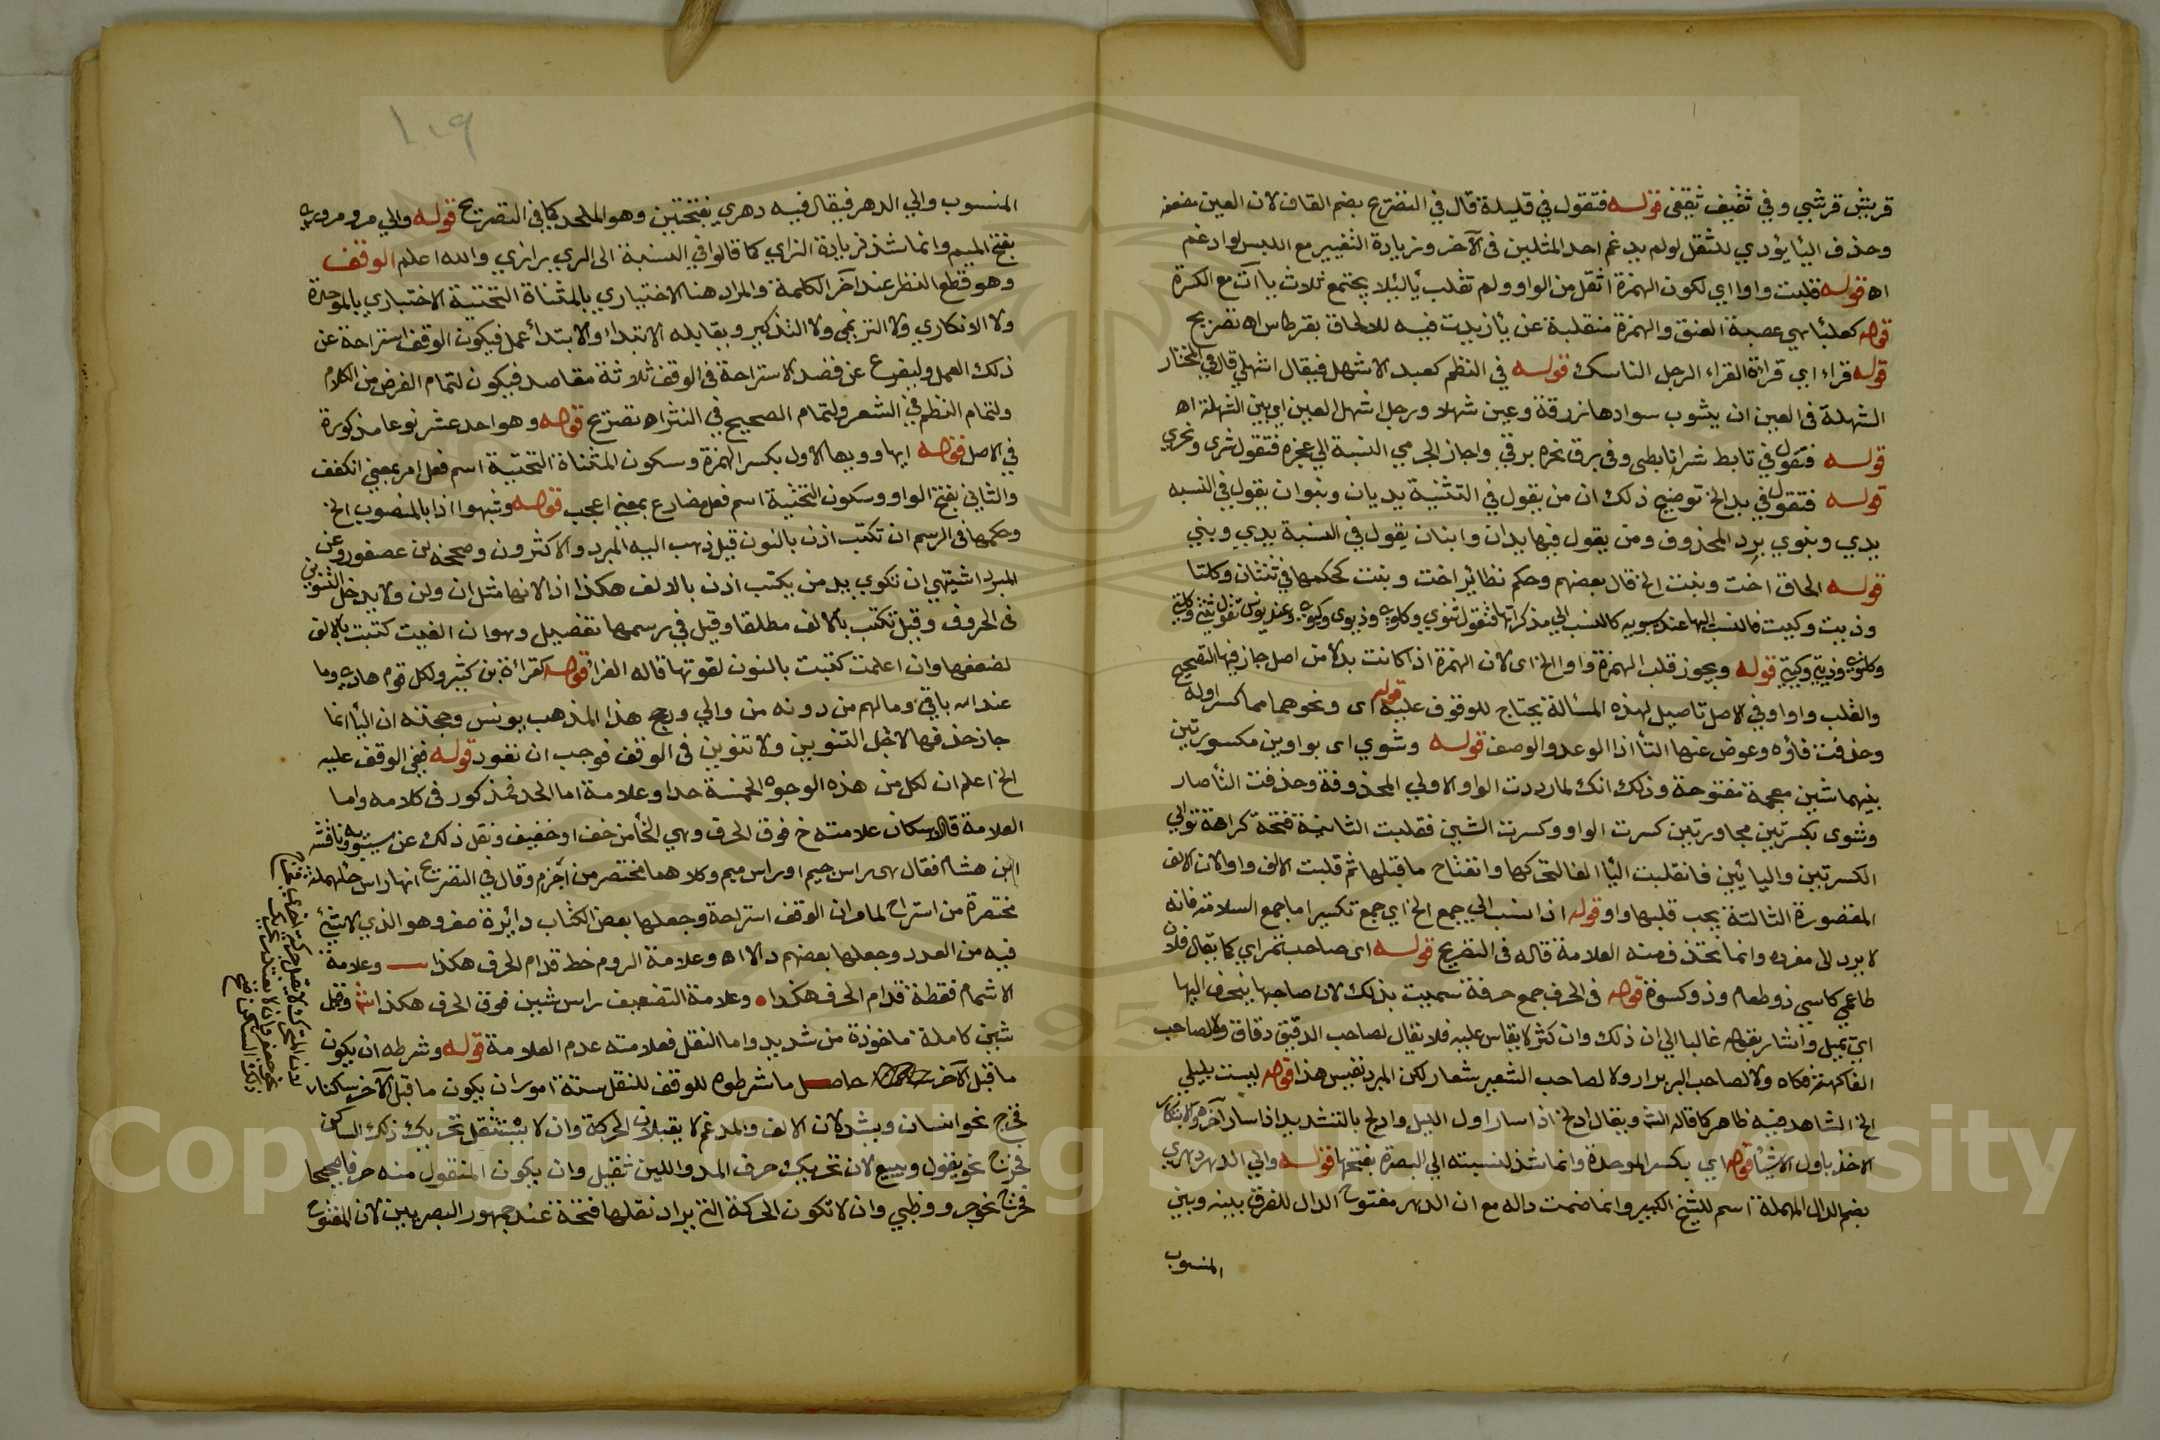 قريش قرشي وفي ثقيف ثقفي قوله فتقول في قليلة قال في التصريح بضم القاف لان العين مضعفة
وحذف اليا يؤدي للثقل لو لم يدغم احد المثلين في الآخر وزيادة التغيير مع اللبس لو ادغم
اه قوله قلبت واوا اي لكون الهمزة اثقل من الواو ولم تقلب يا لئلا يجتمع ثلاث ياآت مع الكسرة
قوله كعلبا هي عصبة العنق والهمزة منقلبة عن يا زيدت فيه للالحاق بقرطاس اه تصريح
قوله قراء اي قراءة القراء الرجل الناسك قوله في النظم كعبد الاشهل فيقال اشهلي قال في المختار
الشهلة في العين ان يشوب سوادها زرقة وعين شهلا ورجل اشهل العين اي بين الشهلة اه
قوله فتقول في تابط شرا تابطي وفي برق نحره برقي واجاز الجرمي النسبة الي عجزه فتقول شري ونحري
قوله فتقول في يد الخ توضيح ذلك ان من يقول في التثنية يديان وبنوان يقول في النسبه
يدي وبنوي برد المحذوف ومن يقول فيها يدان وابنان يقول في النسبة يدي وبني
قوله الحاق اخت وبنت الخ قال بعضهم وحكم نظائر اخت وبنت كحكمها في ثنتان وكلتا
وذيت وكيت فالنسب اليها عند سيبويه كالنسب الي مذكراتها فتقول ثنوي وكلوي وذيوي وكيوي وعند يونس تقول ثنتي وكلتي
وكلتوي وذيتي وكيتي قوله ويجوز قلب الهمزة واوا الخ اي لان الهمزة اذا كانت بدلا من اصل جاز فيها التصحيح
والقلب واوا وفي الاصل تاصيل لهذه المسألة يحتاج للوقوف عليه قوله اي ونحوهما مما كسر اوله
وحذفت فاؤه وعوض عنها التا اذا الوعد والوصف قوله وشوي اي بواوين مكسورتين
بينهما شين معجمة مفتوحة وذلك انك لما رددت الواو الاولي المحذوفة وحذفت التا صار
وشوي بكسرتين مجاورتين كسرت الواو وكسرت الشين فقلبت الثانية فتحة كراهة توالي
الكسرتين واليائين فانقلبت اليا الفا لتحركها وانفتاح ما قبلها ثم قلبت الالف واوا لان الالف
المقصورة الثالثة يجب قلبها واو قوله اذا نسب الي جمع الخ اي جمع تكسير اما جمع السلامة فانه
لا يرد الي مفرده وانما تحذف منه العلامة قاله في التصريح قوله اي صاحب تمر اي كما يقال فلان
طاعم كاسي ذو طعام وذو كسوة قوله في الحرف جمع حرفة سميت بذلك لان صاحبها ينحرف اليها
اي يميل واشار بقوله غالبا الي ان ذلك وان كثر لا يقاس عليه فلا يقال لصاحب الدقيق دقاق ولا لصاحب
الفاكهة فكاه ولا لصاحب البر برار ولا لصاحب الشعير شعار لكن المبرد نقيس هذا قوله لست بليلي
الخ الشاهد فيه ظاهر كما قاله الشم ويقال ادلج اذا سار اول الليل وادلج بالتشديد اذا سار آخره والابتكار
الاخذ باول الاشيا قوله اي بكسر الموحدة وانما شذ لنسبته الي البصرة بفتحها قوله والي الدهر دهري
بضم الدال المهملة اسم للشيخ الكبير وانما ضمت داله مع ان الدهر مفتوح الدال للفرق بينه وبين
المنسوب
١٠٩
المنسوب والي الدهر فيقال فيه دهري بفتحتين وهو الملحد كما في التصريح قوله والي مرو مروزي
بفتح الميم وانما شذ بزيادة الزاي كما قالوا في النسبة الي الري رازي والله اعلم الوقف
وهو قطع النظر عند آخر الكلمة والمراد هنا الاختياري بالمثناة التحتية الاختباري بالموحدة
ولا الانكاري ولا الترنمي ولا التذكير ويقابله الابتداء والابتدا عمل فيكون الوقف استراحة عن
ذلك العمل وليفرع عن قصد الاستراحة في الوقف ثلاثة مقاصد فيكون لتمام الغرض من الكلام
ولتمام النظم في الشعر ولتمام الصحيح في النثر اه تصريح قوله وهو احد عشر نوعا مذكورة
في الاصل قوله ايها وويها الاول بكسر الهمزة وسكون المثناة التحتية اسم فعل امر بمعني انكفف
والثاني بفتح الواو وسكون التحتية اسم فعل مضارع بمعني اعجب قوله وشبهوا اذا بالمنصوب الخ
وحكمها في الرسم ان تكتب اذن بالنون قيل ذهب اليه المبرد والاكثرون وصححه ابن عصفور وعن
المبرد اشتهي ان تكوي يد من يكتب اذن بالالف هكذا اذا لانها مثل ان ولن ولا يدخل التنوين
في الحروف وقيل تكتب بالالف مطلقا وقيل في رسمها تفصيل وهو ان الغيت كتبت بالالف
لضعفها وان اعلمت كتبت بالنون لقوتها قاله الفرا قوله كقراءة ابن كثير ولكل قوم هادي وما
عند الله باقي وما لهم من دونه من والي ورجح هذا المذهب يونس وحجته ان اليا انما
جاز حذفها لاجل التنوين ولا تنوين في الوقف فوجب ان نقود قوله ففي الوقف عليه
الخ اعلم ان لكل من هذه الوجوه الخمسة حدا وعلامة اما الحد فمذكور في كلامه واما
العلامة فالاسكان علامته خ فوق الحرف وهي الخا من خف او خفيف ونقل ذلك عن سيبويه وناقشه
ابن هشام فقال هي راس جيم او راس ميم وكلاهما مختصر من اجزم وقال في التصريح انها راس حا مهملة
مختصرة من استراح لما مر ان الوقف استراحة وجعلها بعض الكتاب دائرة صفر وهو الذي لا شي
فيه من العدد وجعلها بعضهم دالا اه وعلامة الروم خط قدام الحرف هكذا — وعلامة
الاشمام نقطة قدام الحرف هكذا • وعلامة التضعيف راس شين فوق الحرف هكذا شـ وقيل
شين كاملة ماخوذة من شديد واما النقل فعلامته عدم العلامة قوله وشرطه ان يكون
ما قبل الآخر حاصل ما شرطوه للوقف للنقل ستة امور ان يكون ما قبل الآخر ساكنا
فخرج نحو انسان ويشد لان الالف والمدغم لا يقبلان الحركة وان لا يستثقل تحريك ذلك الساكن
فخرج نحو يقول ويبيع لان تحريك حرف المد واللين ثقيل وان يكون المنقول منه حرفا صحيحا
فخرج نحو جرو وظبي وان لا تكون الحركة التي يراد نقلها فتحة عند جمهور البصريين لان المفتوح
Copyright © King Saud University
1957